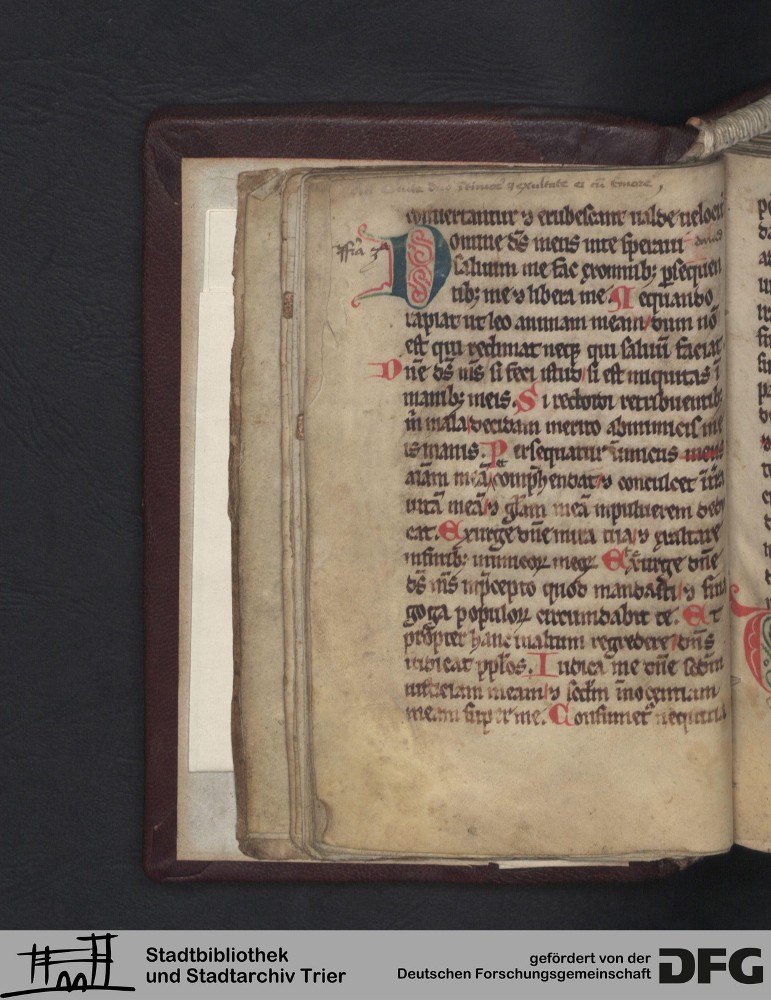 conuertantur ⁊ erubescant ualde uelociter
Domine ds̄ meus in te speraui
saluum me fac ex omnib; ꝑsequen
tib; me ⁊ libera me. Ne quando
rapiat ut leo animam meam dum nō
est qui redimat neqꝫ qui saluū faciat
Dn̄e ds̄ ms̄ si feci istud si est iniquitas ī
manib; meis. Si reddidi retribuentib;
m̄ mala decidam merito ab inimicis me
is inanis. Persequatur inimicus meus
aīam meā et comp̄hendat ⁊ conculcet ī t̄ra
uitā meā ⁊ gl̄am meā in puluerem dedu
cat. Exurge dn̄e in ira tua ⁊ exaltare
in finib; inimicoꝝ meoꝝ. Et exurge dn̄e
ds̄ ms̄ in p̄cepto quod mandasti ⁊ sina
goga populoꝝ circumdabit te. Et
propter hanc in altum regredere dn̄s
iudicat ppl̄os. Iudica me dn̄e scd̄m
iusticiam meam ⁊ scd̄m īnocentiam
meam super me. Consumet̄ nequitia
Stadtbibliothek
und Stadtarchiv Trier
gefördert von der
Deutschen Forschungsgemeinschaft
DFG